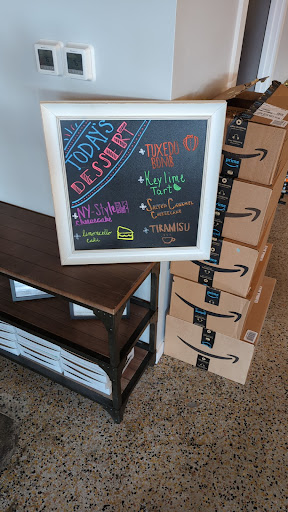 TODAY'S
DESSERT
+ NY-Style
cheesecake
+ limoncello
cake
+ TUXEDO
BOMB
+ Key lime
Tart
+ Salted Caramel
Cheesecake
+ TIRAMISU
prime